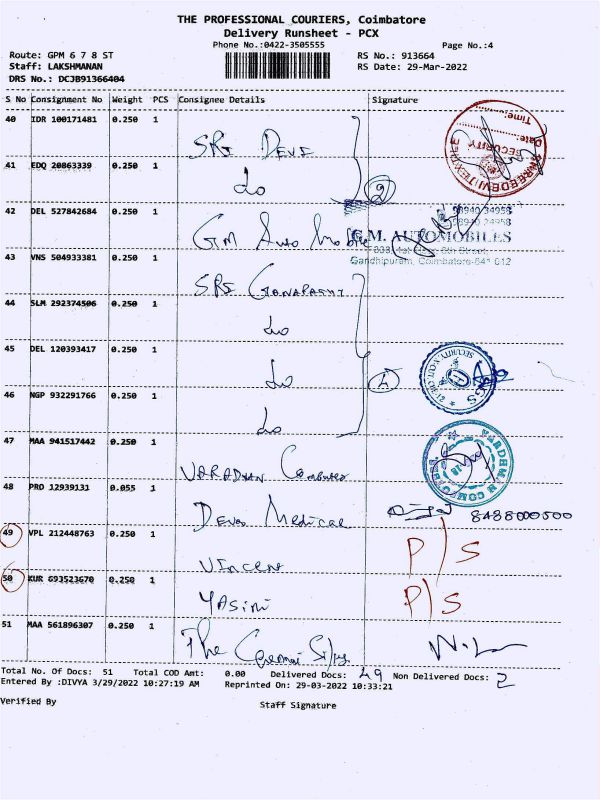 THE PROFESSIONAL COURIERS, Coimbatore
Delivery Runsheet - PCX
Phone No.:0422-3505555 Page No.:4
Route: GPM 6 7 8 ST RS No.: 913664
Staff: LAKSHMANAN RS Date: 29-Mar-2022
DRS No.: DCJB91366404
S No Consignment No Weight PCS Consignee Details Signature
40 IDR 100171481 0.250 1 SRI DEVI
Time:
Date:
SECURITY
41 EDQ 20863339 0.250 1 do
2
42 DEL 527842684 0.250 1 GM Auto Mobiles
98940 34958
G.M. AUTOMOBILES
Gandhipuram, Coimbatore-641 012
43 VNS 504933381 0.250 1 SRI GANAPATHY
44 SLM 292374506 0.250 1 do
45 DEL 120393417 0.250 1 do
4
46 NGP 932291766 0.250 1 do
47 MAA 941517442 0.250 1 VARADHAN Computer
VARDHMAN COMPUTER
48 PRO 12939131 0.055 1 Deva Medical
8488000500
49 VPL 212448763 0.250 1 Vincent P/S
50 KUR 693523670 0.250 1 YASINI P/S
51 MAA 561896307 0.250 1 The Chennai Silks
Total No. Of Docs: 51 Total COD Amt: 0.00 Delivered Docs: 49 Non Delivered Docs: 2
Entered By :DIVYA 3/29/2022 10:27:19 AM Reprinted On: 29-03-2022 10:33:21
Verified By Staff Signature